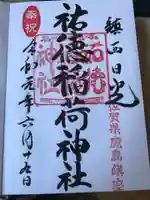 鎮西日光
佐賀県鹿島鎮座
祐徳稲荷神社
奉祝
令和元年六月十七日